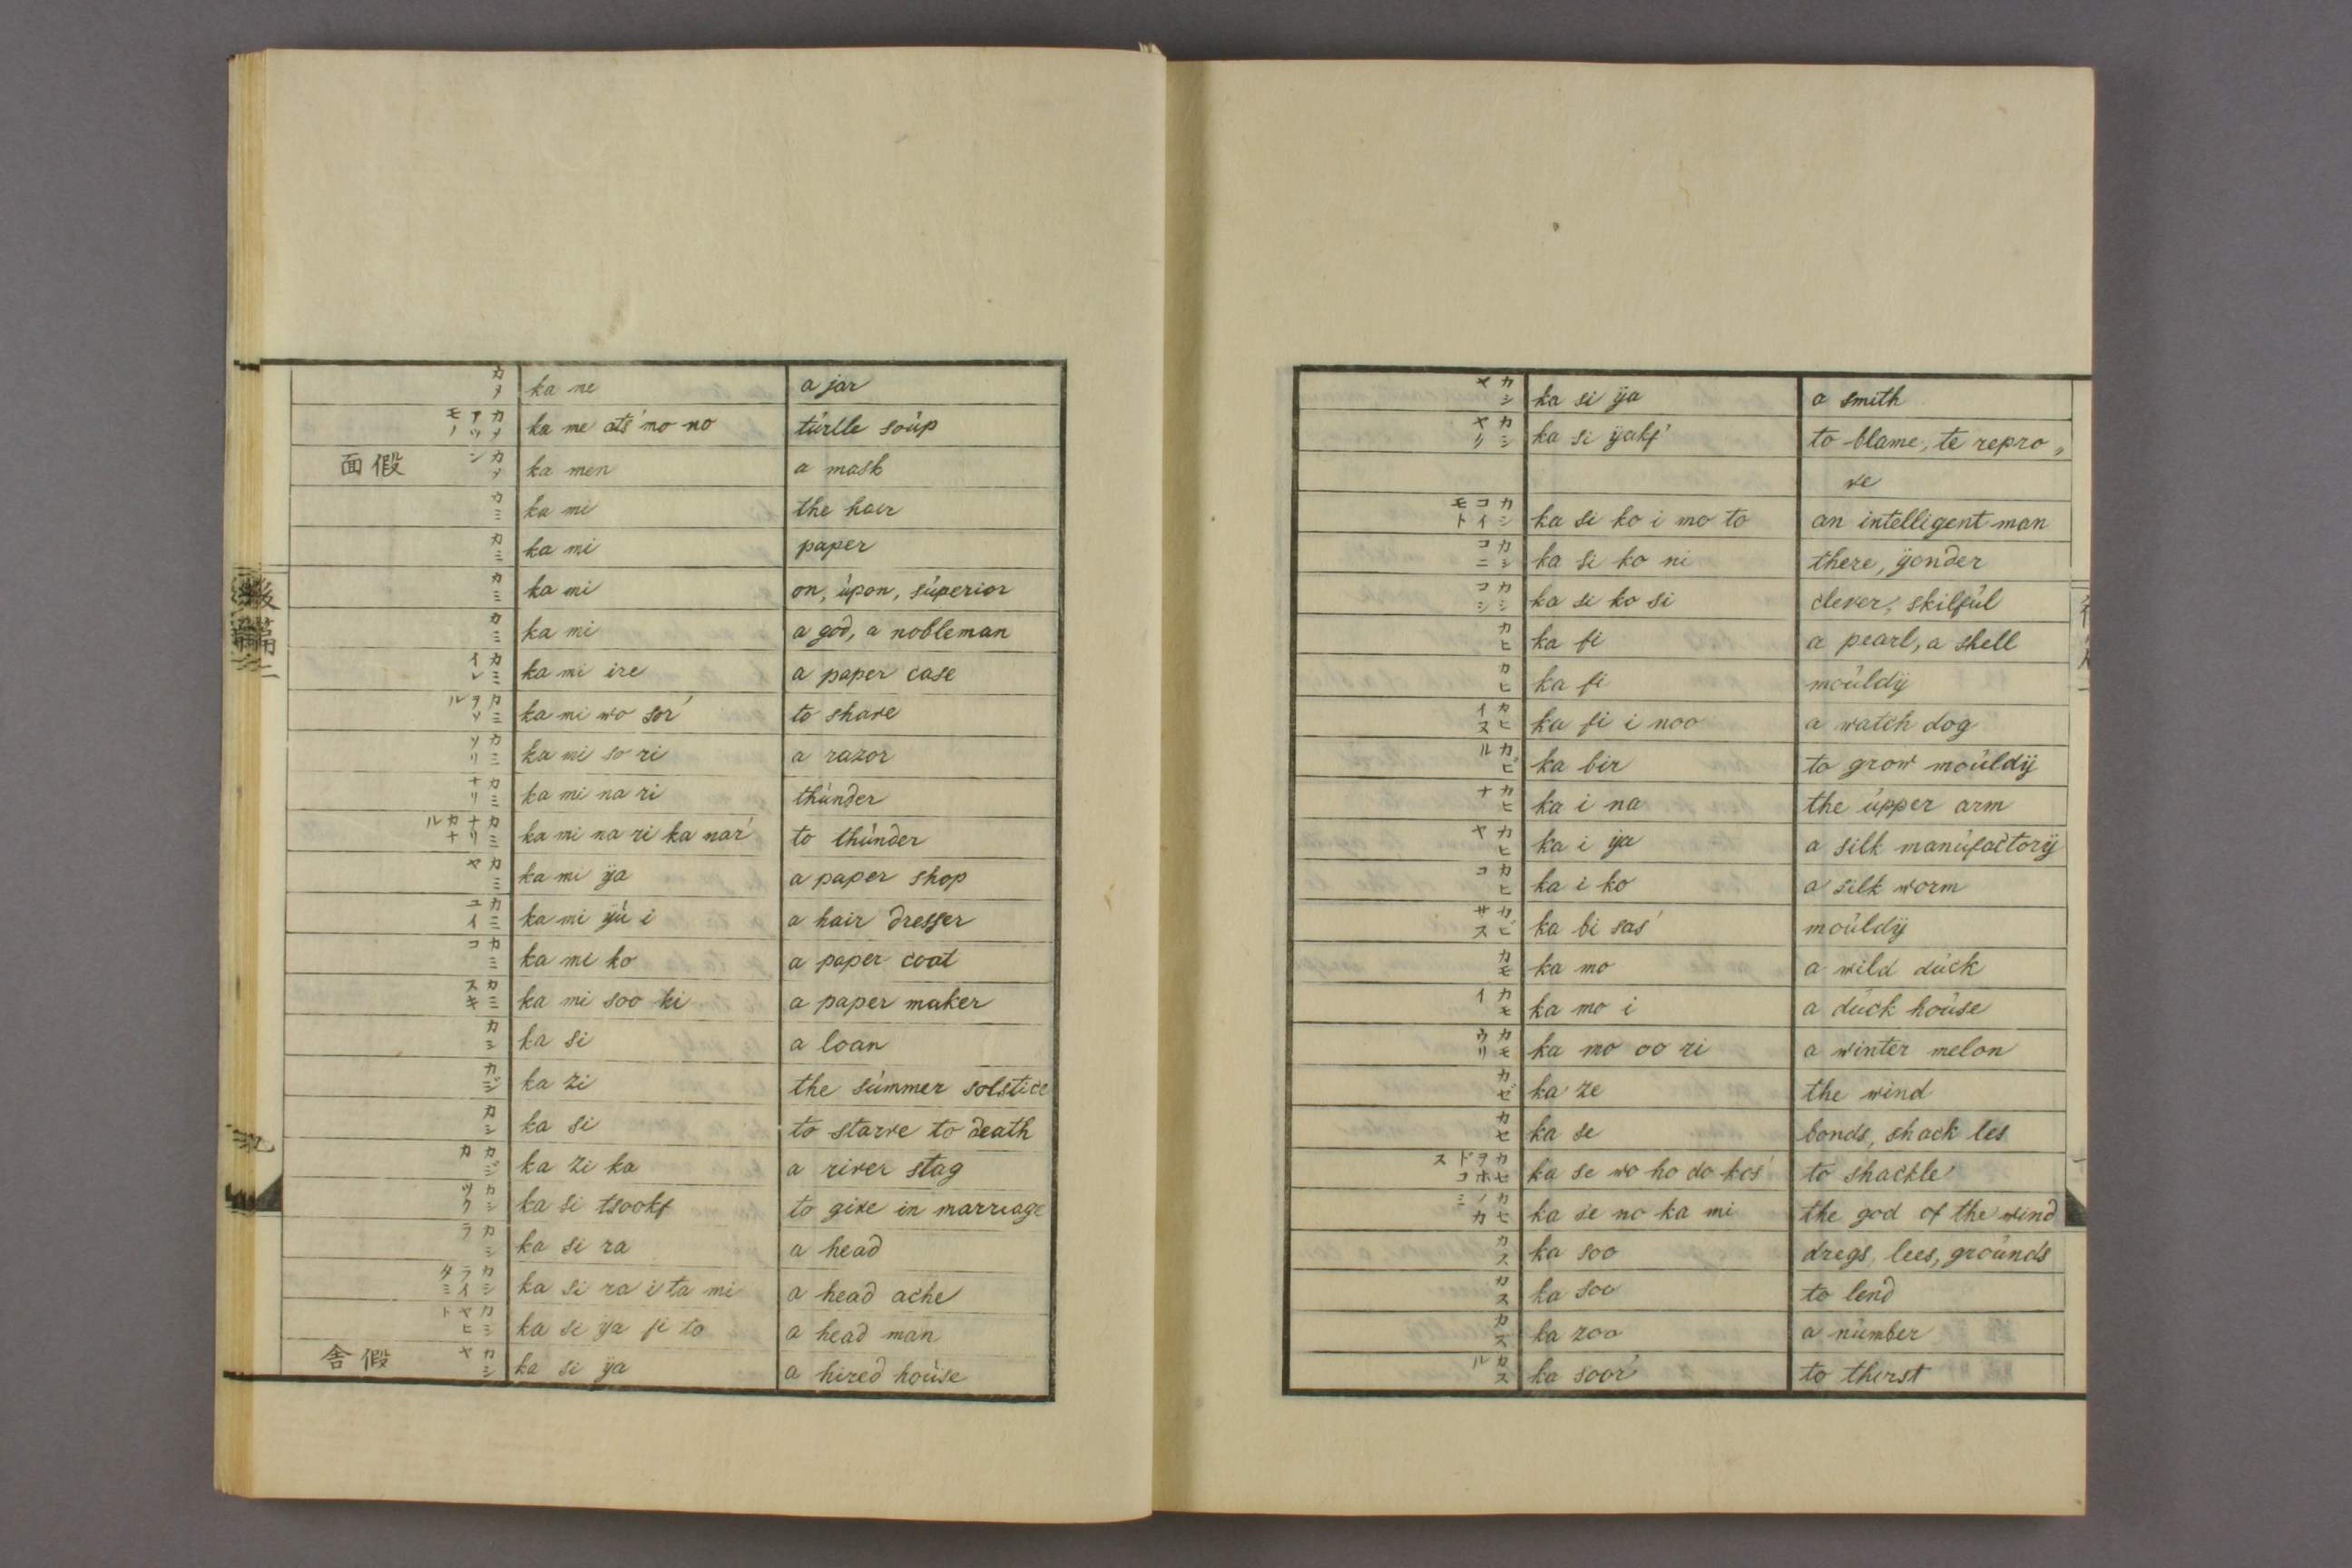 カメ ka ne a jar
カメアツモノ ka me ats' mo no túrlle soúp
假面 カメン ka men a mask
カミ ka mi the hair
カミ ka mi paper
カミ ka mi on, úpon, súperior
カミ ka mi a god, a nobleman
カミイレ ka mi ire a paper case
カミヲソル ka mi wo sor' to shave
カミソリ ka mi so ri a razor
カミナリ ka mi na ri thúnder
カミナリカナル ka mi na ri ka nar' to thúnder
カミヤ ka mi ÿa a paper shop
カミユイ ka mi ÿú i a hair dresser
カミコ ka mi ko a paper coat
カミスキ ka mi soo ki a paper maker
カシ ka si a loan
カジ ka zi the súmmer solstice
カシ ka si to starve to death
カジカ ka zi ka a river stag
カシツク ka si tsookf to give in marriage
カシラ ka si ra a head
カシライタミ ka si ra i ta mi a head ache
カシヤヒト ka si ya fi to a head man
假舎 カシヤ ka si ÿa a hired hoúse
後篇二
カシヤ ka si ÿa a smith
カシヤク ka si ÿakf' to blame, te repro„
ve
カシコイモト ka si ko i mo to an intelligent man
カシコニ ka si ko ni there, ÿonder
カシコシ ka si ko si clever, skilfúl
カヒ ka fi a pearl, a shell
カヒ ka fi moúldÿ
カヒイヌ ka fi i noo a watch dog
カビル ka bir to grow moúldÿ
カヒナ ka i na the úpper arm
カヒヤ ka i ÿa a silk manúfactorÿ
カヒコ ka i ko a silk worm
カビサス ka bi sas' moúldÿ
カモ ka mo a wild dúck
カモイ ka mo i a dúck hoúse
カモウリ ka mo oo ri a winter melon
カゼ ka ze the wind
カセ ka se bonds, shack les
カセヲホドコス ka se wo ho do kos' to shackle
カセノカミ ka se no ka mi the god of the wind
カス ka soo dregs, lees, groúnds
カス ka soo to lend
カス ka zoo a númber
カスル ka soor' to therst